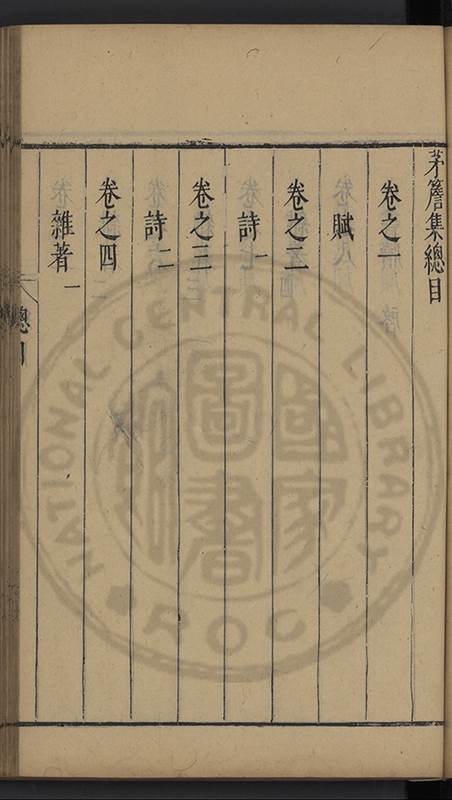 茅簷集總目
卷之一
賦
卷之二
詩一
卷之三
詩二
卷之四
雜著一
總目
NATIONAL CENTRAL LIBRARY
國家圖書館
ROC